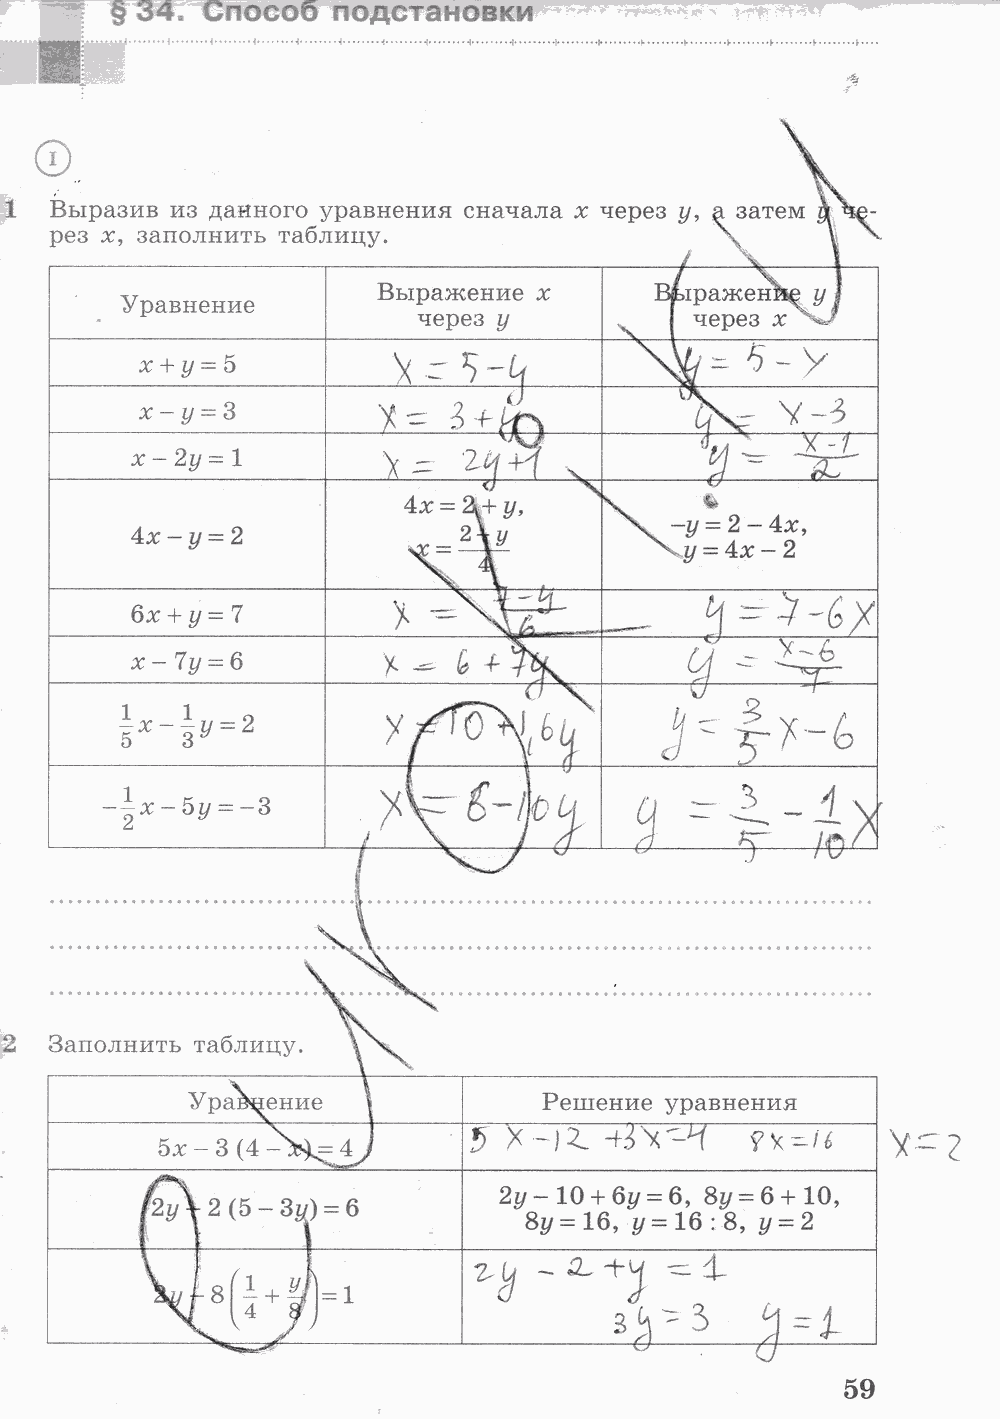 § 34. Способ подстановки
I
1 Выразив из данного уравнения сначала x через y, а затем y че-
рез x, заполнить таблицу.
Уравнение | Выражение x через y | Выражение y через x
x + y = 5 | x = 5 - y | y = 5 - x
x - y = 3 | x = 3 + y | y = x - 3
x - 2y = 1 | x = 2y + 1 | y = (x-1)/2
4x - y = 2 | 4x = 2 + y, x = (2 + y)/4 | -y = 2 - 4x, y = 4x - 2
6x + y = 7 | x = (7-y)/6 | y = 7 - 6x
x - 7y = 6 | x = 6 + 7y | y = (x-6)/7
1/5 x - 1/3 y = 2 | x = 10 + 1,6y | y = 3/5 x - 6
-1/2 x - 5y = -3 | x = 6 - 10y | y = 3/5 - 1/10 x
2 Заполнить таблицу.
Уравнение | Решение уравнения
5x - 3 (4 - x) = 4 | 5x - 12 + 3x = 4 8x = 16 x = 2
2y - 2 (5 - 3y) = 6 | 2y - 10 + 6y = 6, 8y = 6 + 10,
8y = 16, y = 16 : 8, y = 2
2y - 8 (1/4 + y/8) = 1 | 2y - 2 + y = 1
3y = 3 y = 1
59